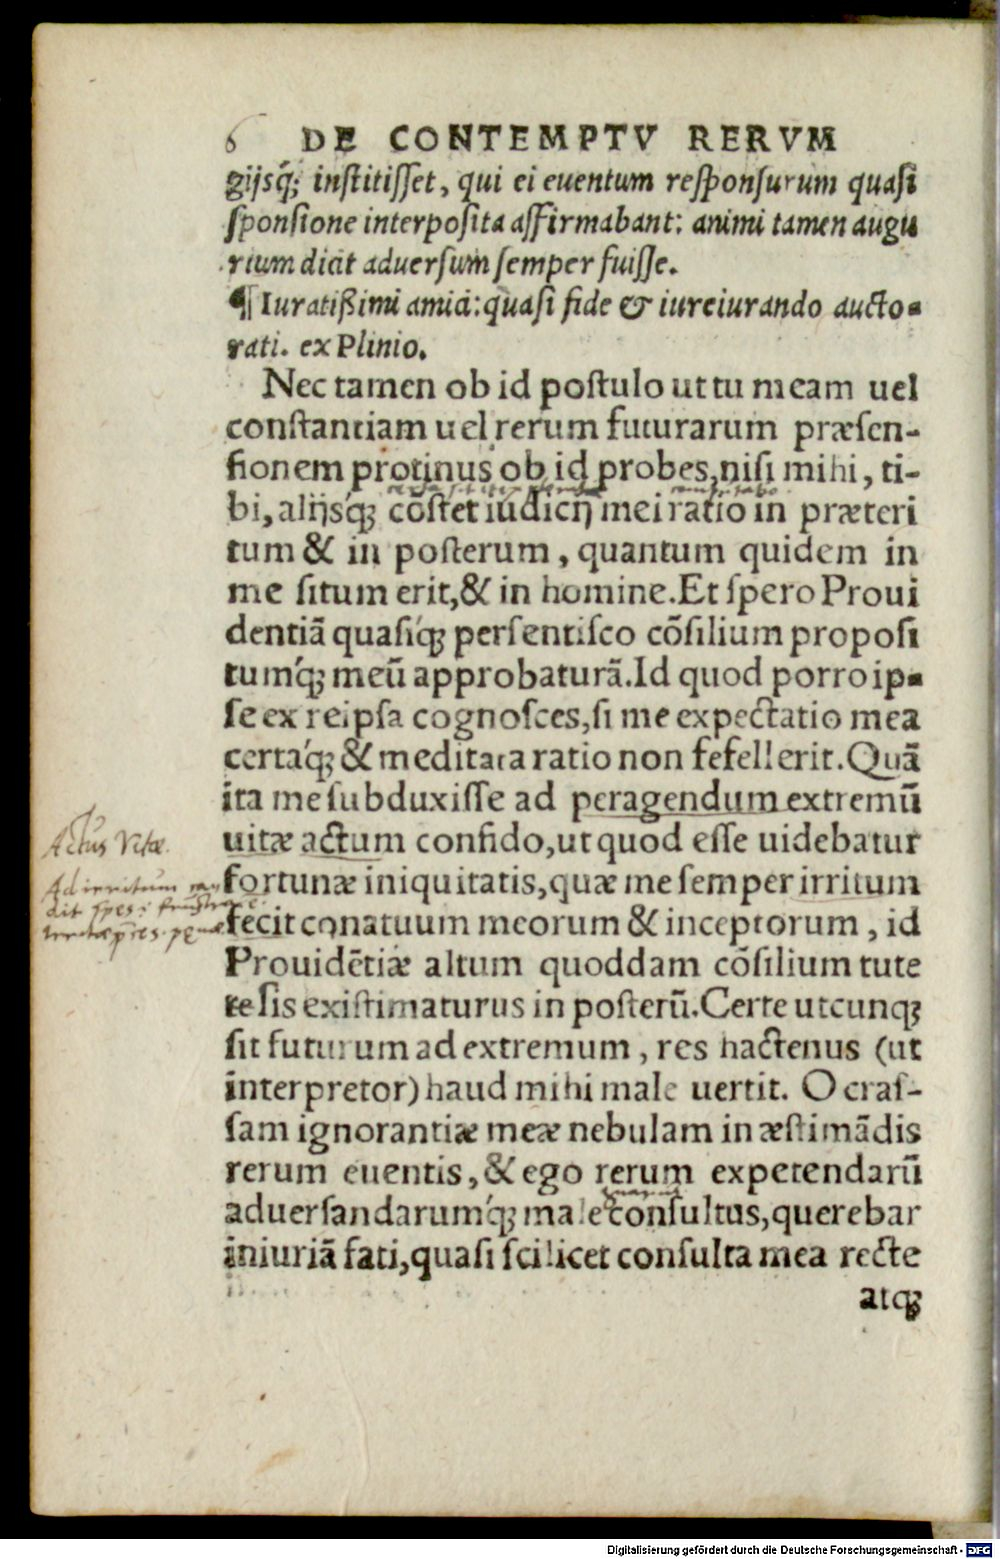 6 DE CONTEMPTV RERVM
gijsq́; institisset, qui ei euentum responsurum quasi
sponsione interposita affirmabant: animi tamen augu
rium dicit aduersum semper fuisse.
¶ Iuratißimi amici: quasi fide & iureiurando aucto-
rati. ex Plinio.
Nec tamen ob id postulo ut tu meam uel
constantiam uel rerum futurarum præsen-
sionem protinus ob id probes, nisi mihi, ti-
bi, alijsq́; cōstet iudicij mei ratio in præteri
tum & in posterum, quantum quidem in
me situm erit, & in homine. Et spero Proui
dentiā quasiq́; persentisco cōsilium proposi
tumq́; meū approbaturā. Id quod porro ip-
se ex reipsa cognosces, si me expectatio mea
certaq́; & meditata ratio non fefellerit. Quā
ita me subduxisse ad peragendum extremū
uitæ actum confido, ut quod esse uidebatur
Actus Vitæ.
fortunæ iniquitatis, quæ me semper irritum
Ad irritum
dit spes:
fecit conatuum meorum & inceptorum, id
Prouidētiæ altum quoddam cōsilium tute
te sis existimaturus in posterū. Certe utcunq;
sit futurum ad extremum, res hactenus (ut
interpretor) haud mihi male uertit. O cras-
sam ignorantiæ meæ nebulam in æstimādis
rerum euentis, & ego rerum expetendarū
aduersandarumq́; male consultus, querebar
iniuriā fati, quasi scilicet consulta mea recte
atq;
Digitalisierung gefördert durch die Deutsche Forschungsgemeinschaft - DFG